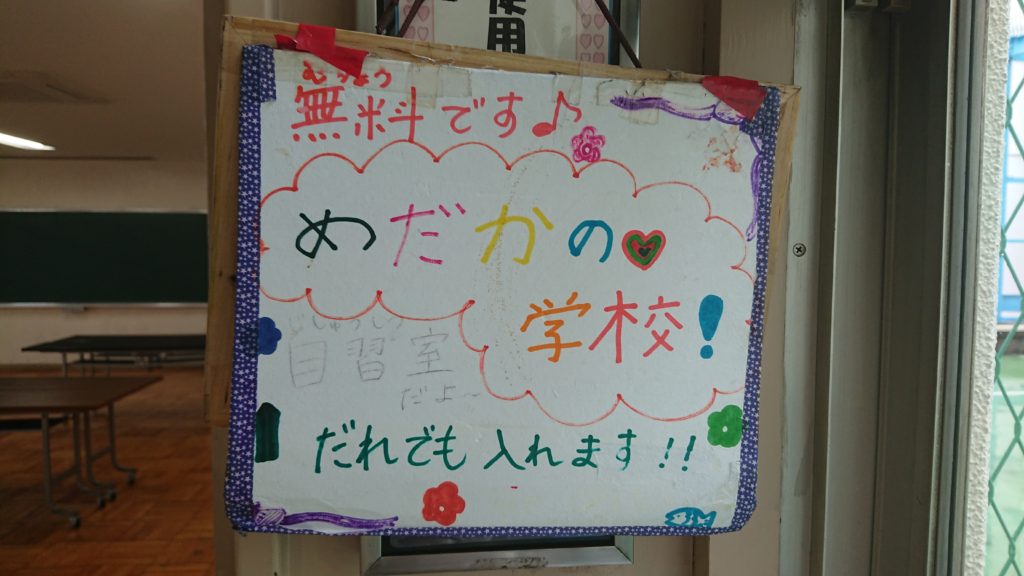 用
むりょう
無料です♪
めだかの
学校!
じしゅうしつ
自習室
だよ~
だれでも入れます!!